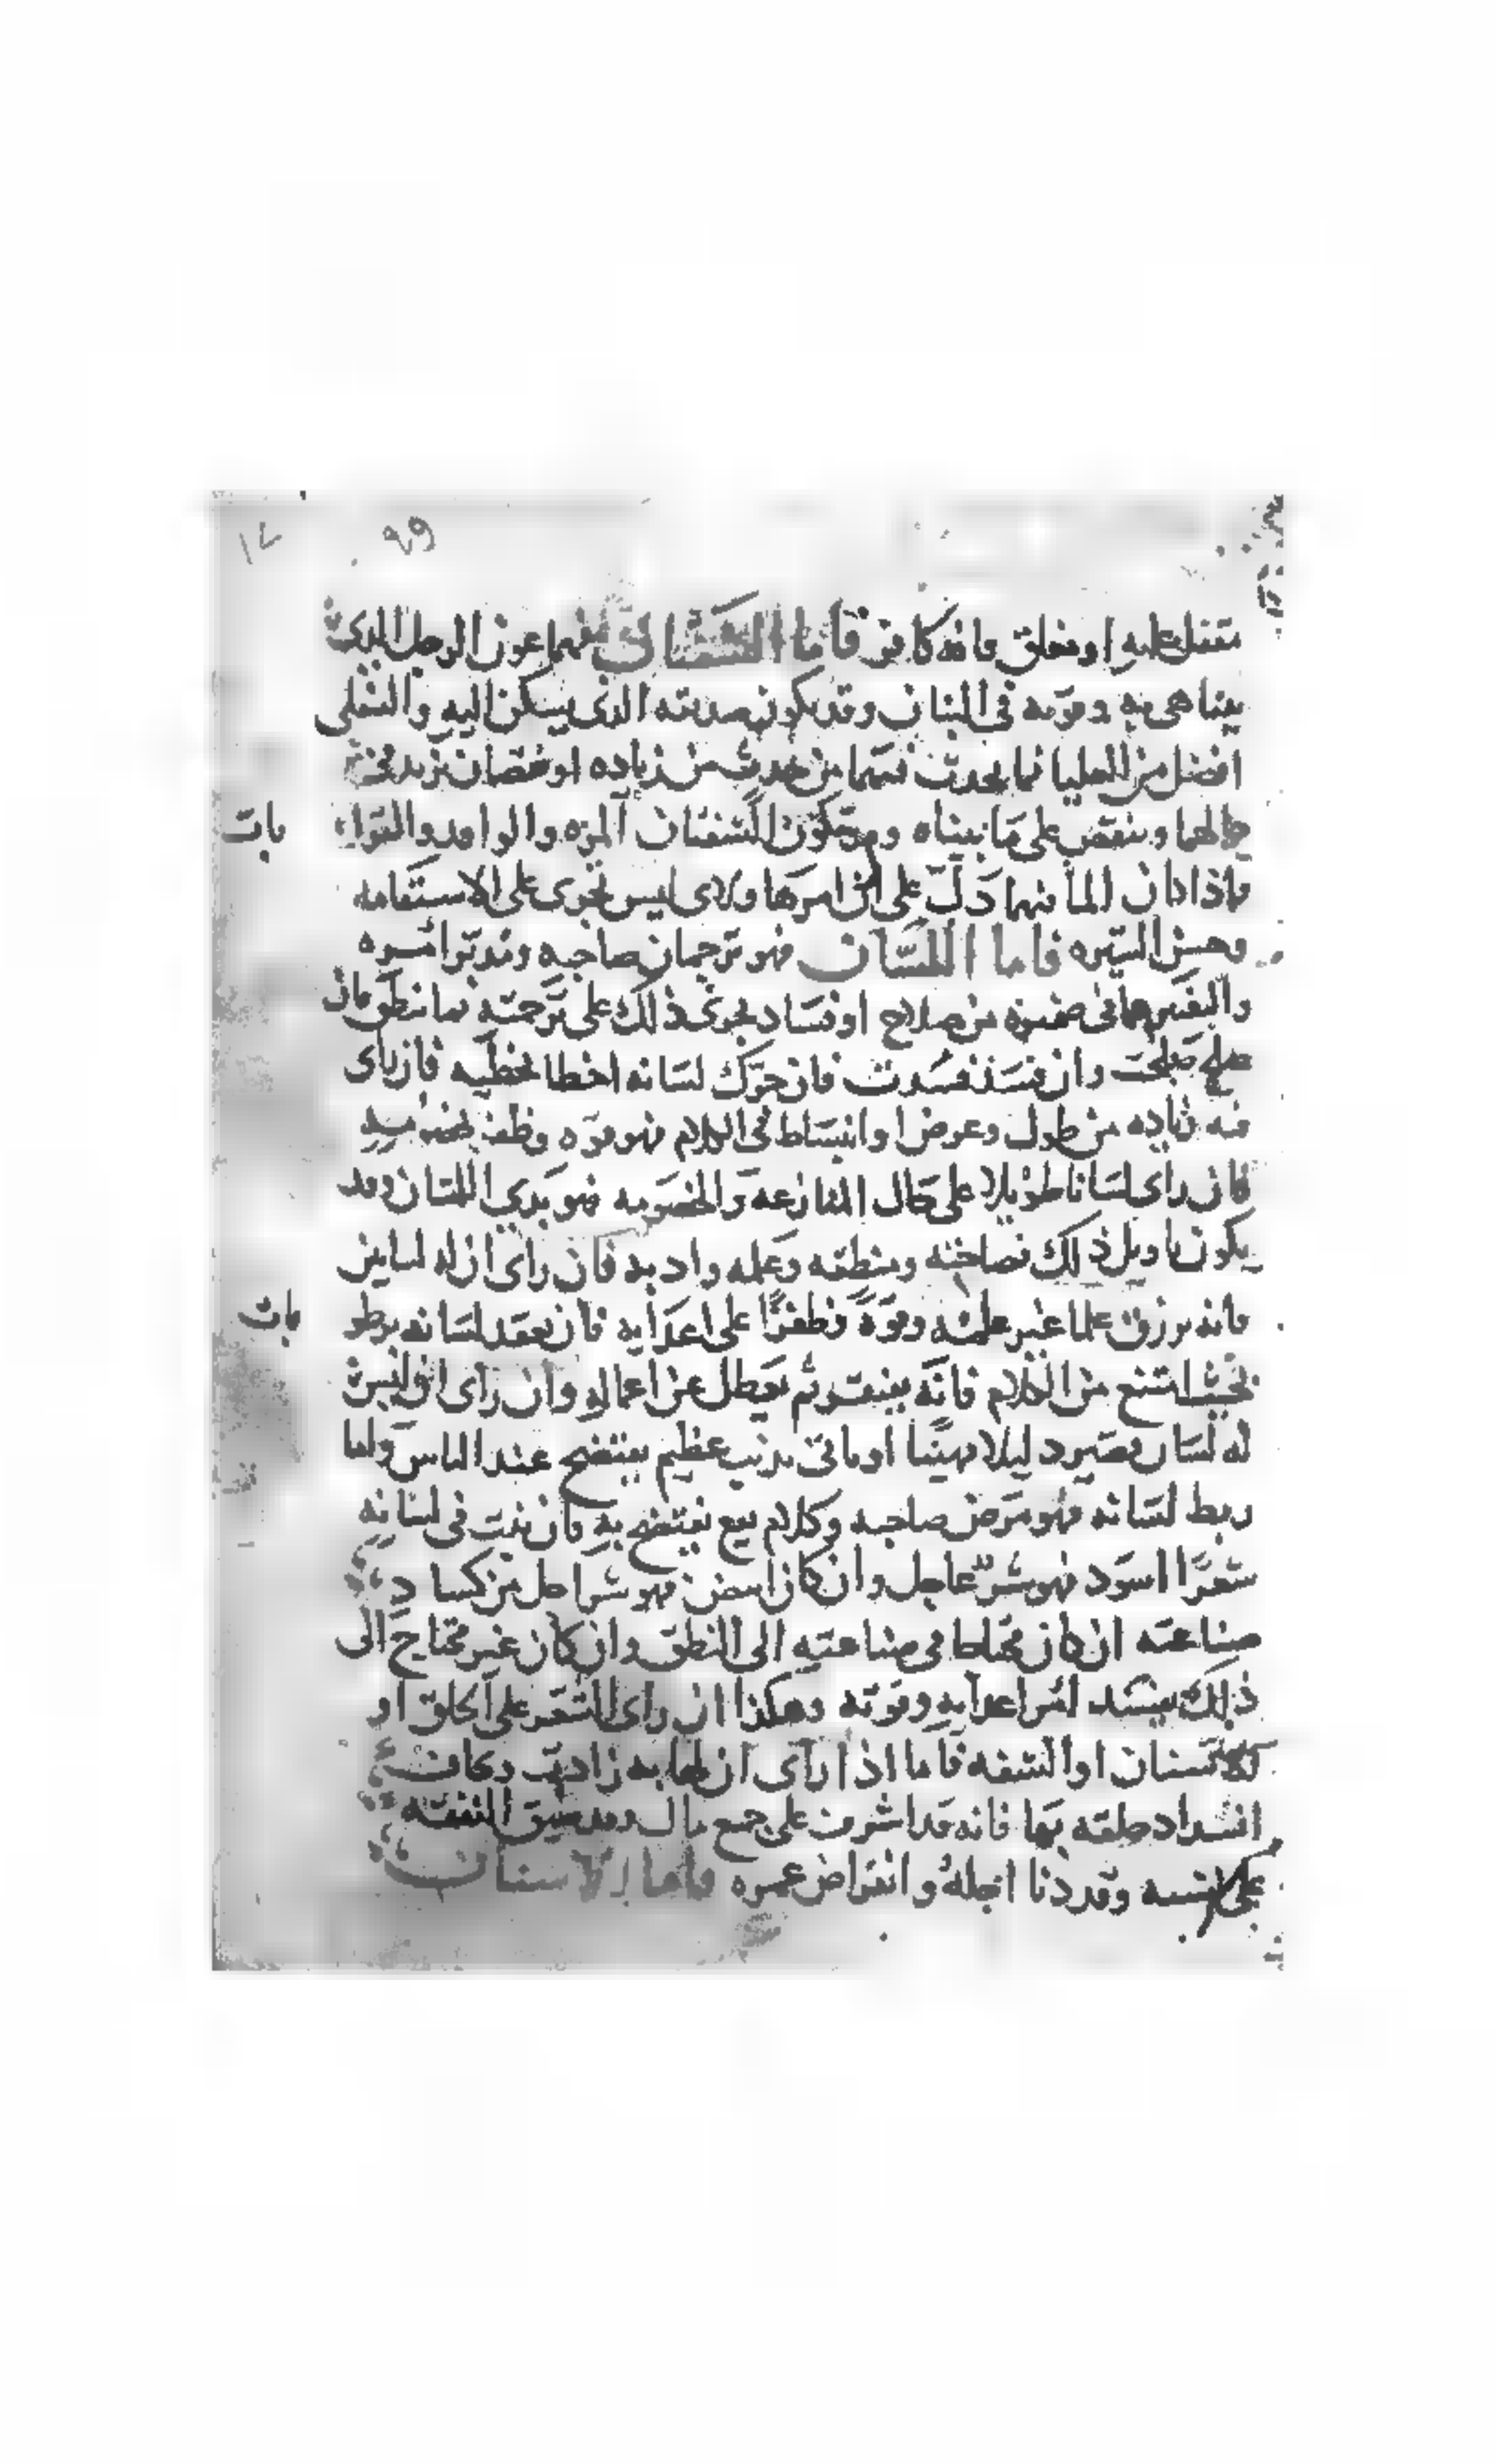 مقفل عليه او مغلق فانه كافر فاما الشفتان فهما عون الرجل الذى
يتباهى به وقوته فى البنان وقد يكون صديقه الذى يسكن اليه والسفلى
افضل من العليا فما يحدث فيهما من حدث من زياده او نقصان يزيد فى
حالهما وينقص على ما بيناه وقد تكون الشفتان المره والوالد والقرا
بات
فاذا كان الما فيهما دلّ على ان امرها ولاى ليس تجرى على الاستقامه
وحسن السيره فاما اللسان فهو ترجمان صاحبه ومدبر امره
والمعبر عما فى ضميره من صلاح او فساد يجرى ذلك على ترجمته بما ينطق فان
صلح صلحت وان فسد فسدت فان حرّك لسانه اخطا بخطيه فان راى
فيه زياده من طول وعرض او انبساط فى الكلام فهو قوه وظفر بخصمه
فان راى لسانا طويلا على حال المنازعه والخصومه فهو بذى اللسان وقد
يكون تاويل ذلك فصاحته ومنطقه وعلمه وادبه فان راى ان له لسانين
فانه يرزق علما غير علمه وقوة وظفرًا على اعدايه فان يعقد لسانه
بات
بحيث امتنع من الكلام فانه يفتقر ثم يعطل عن اعماله وان راى انه ليس
له لسان فصيرو ليلا مهينًا او ياتى بذنب عظيم يفتضح عند الناس واما
ربط لسانه فهو مرض صاحبه وكلام يفتضح به فان نبت فى لسانه
شعرًا اسود فهو شرّ عاجل وان كان ابيض فهو شر اجل من كساد
صناعته ان كان محتاجا فى صناعته الى النطق وان كان غير محتاج الى
ذلك امر اعدايه وقوته وهكذا ان راى الشعر على الحلق او
الاسنان او الشفه فاما اذا راى ان لهاته زادت وخاف
انسداد حلقه بها فانه قد اشرف على جمع مال وقد ضيق النفقه
على نفسه وقد دنا اجله وانقراض عمره فاما الاسنان